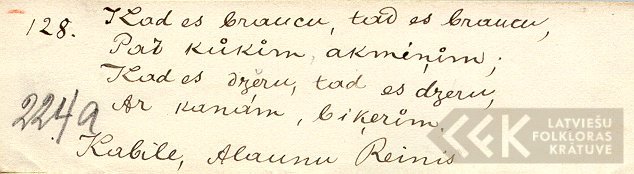 128. Kad es braucu, tad es braucu,
Pař kůkim, akmeņim;
Kad es dzěru, tad es dzeru,
Ar kanám, biķerim.
224a
Kabile, Alaunu Reinis
LATVIEŠU
FOLKLORAS
KRĀTUVE